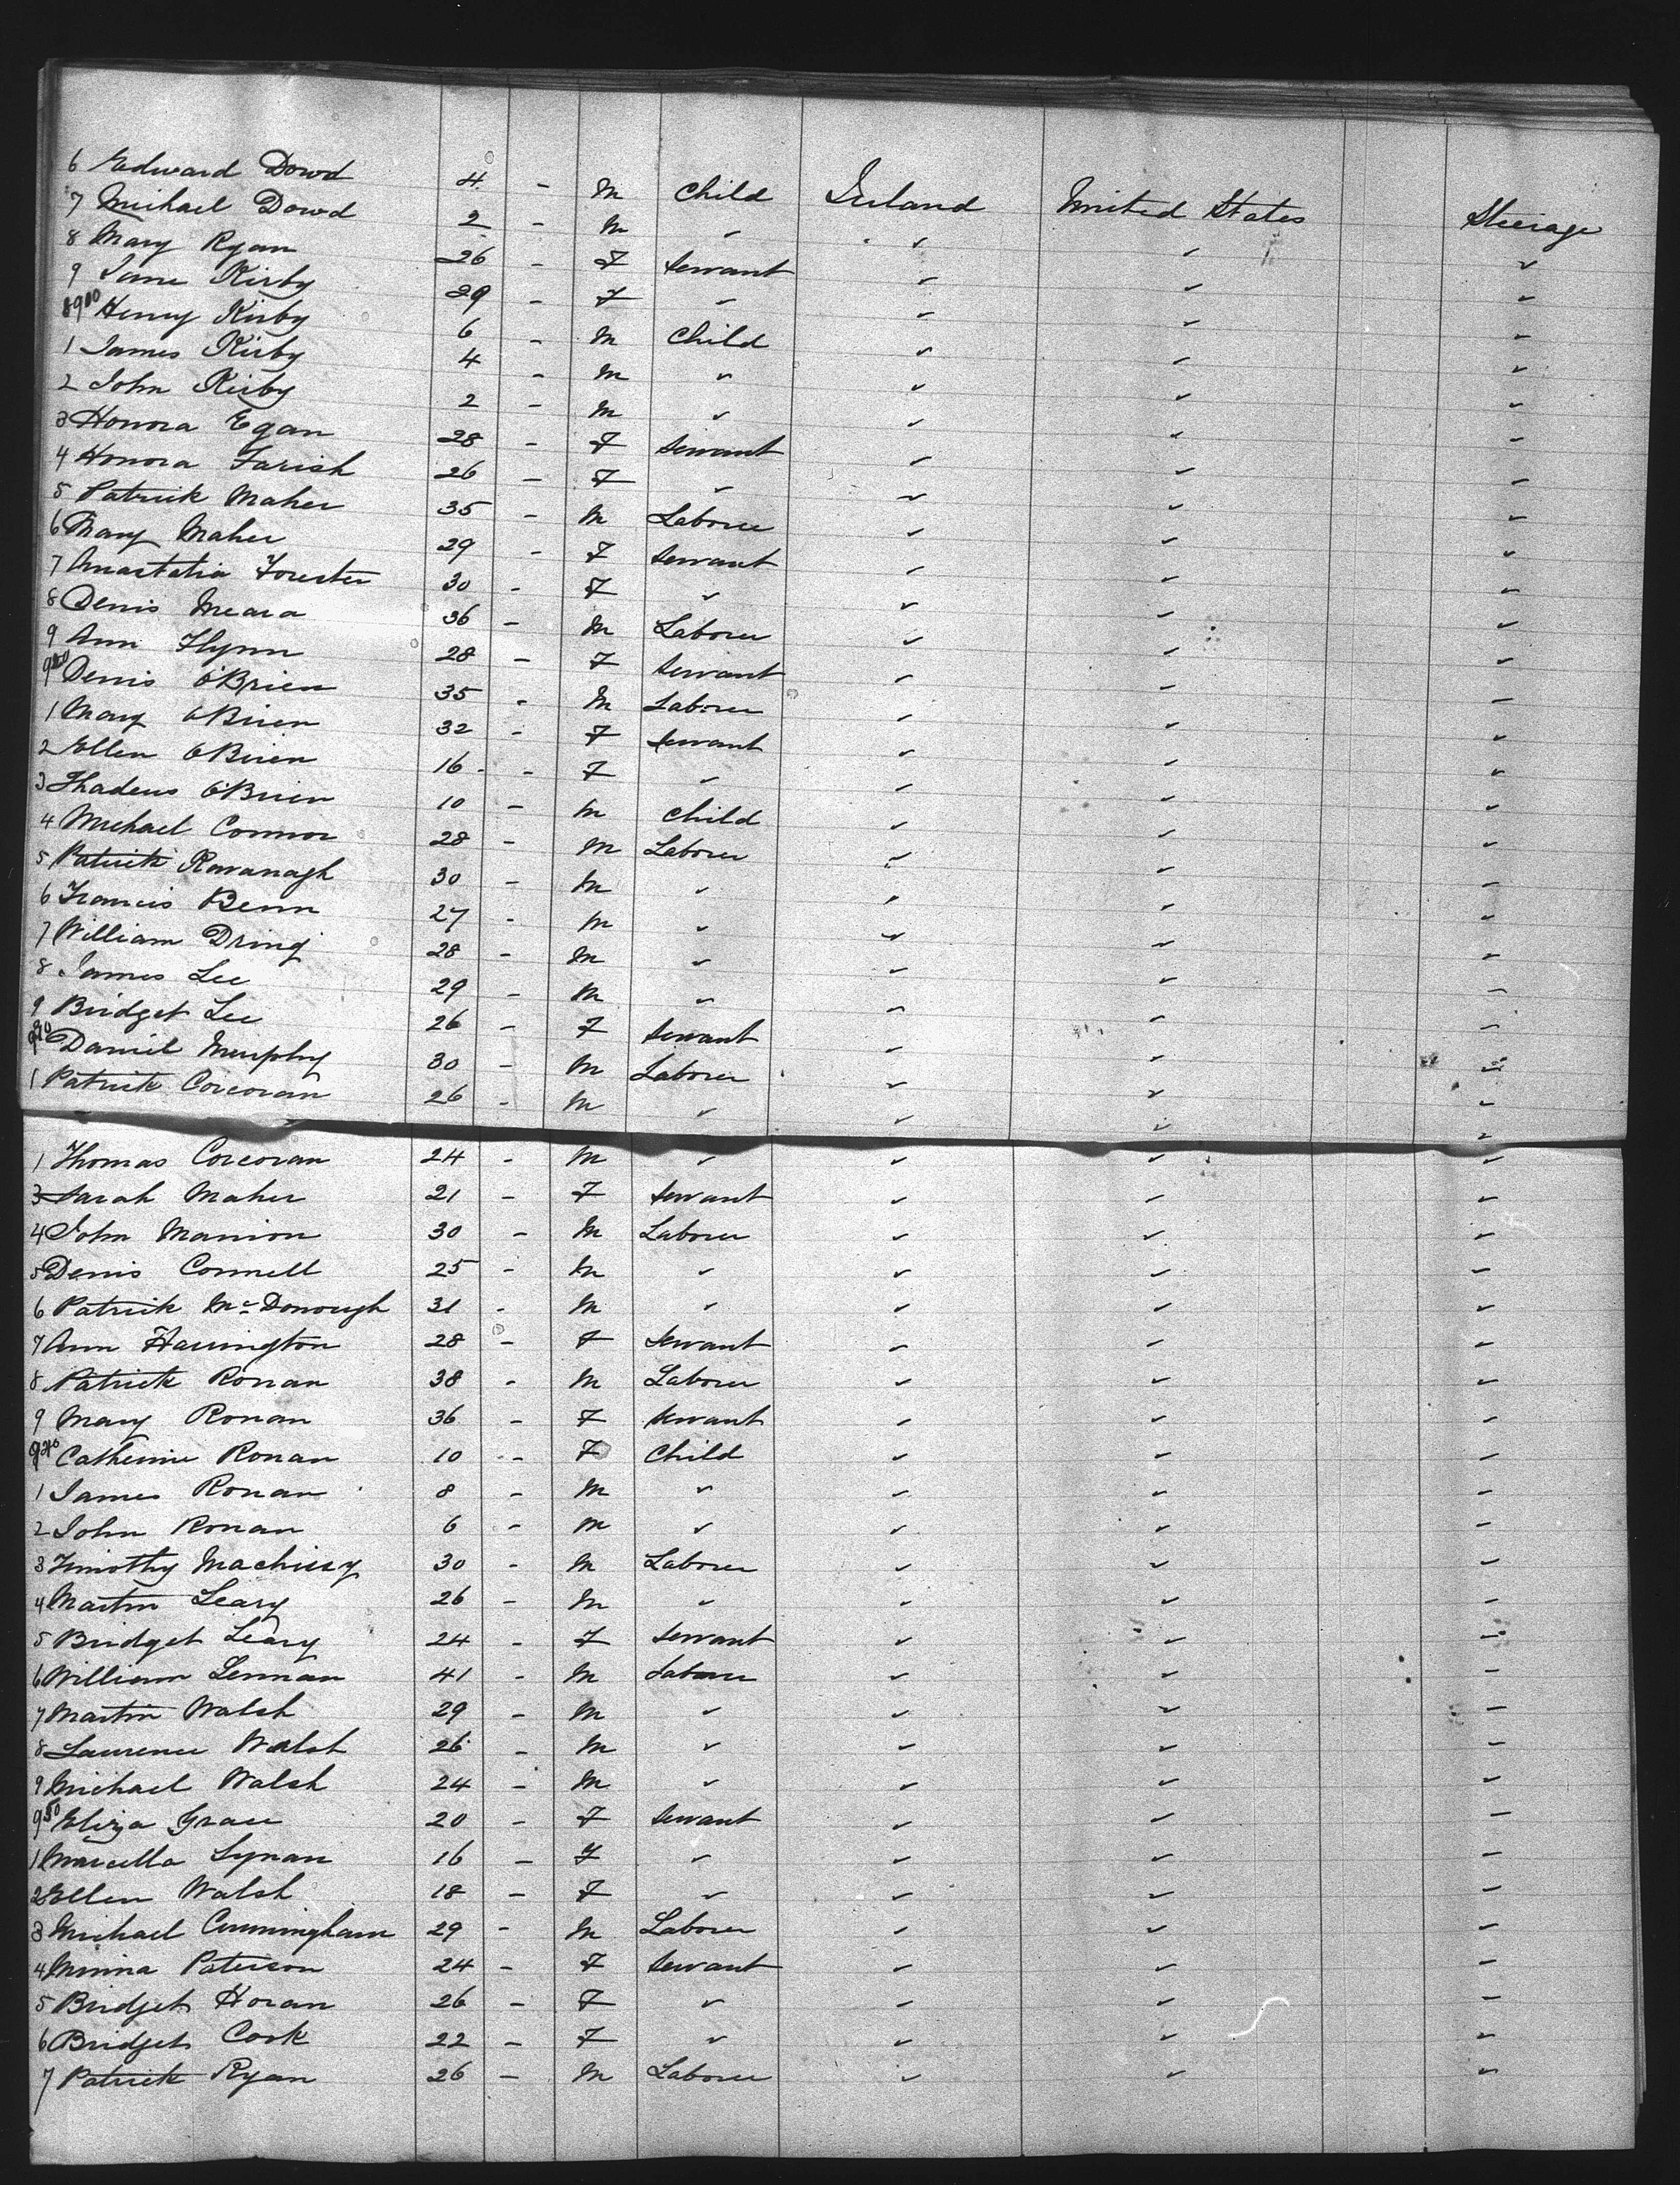 6 Edward Dowd 4 - M Child Ireland United States Steerage
7 Michael Dowd 2 - M " " " "
8 Mary Ryan 26 - F Servant " " "
9 Jane Kirby 29 - F " " " "
890 Henry Kirby 6 - M Child " " "
1 James Kirby 4 - M " " " "
2 John Kirby 2 - M " " " "
3 Honora Egan 28 - F Servant " " "
4 Honora Farish 26 - F " " " "
5 Patrick Maher 35 - M Laborer " " "
6 Mary Maher 29 - F Servant " " "
7 Anastatia Forester 30 - F " " " "
8 Denis Meara 36 - M Laborer " " "
9 Ann Flynn 28 - F Servant " " "
900 Denis O'Brien 35 - M Laborer " " "
1 Mary O'Brien 32 - F Servant " " "
2 Ellen O'Brien 16 - F " " " "
3 Thadeus O'Brien 10 - M Child " " "
4 Michael Connor 28 - M Laborer " " "
5 Patrick Kavanagh 30 - M " " " "
6 Francis Benn 27 - M " " " "
7 William Dring 28 - M " " " "
8 James Lee 29 - M " " " "
9 Bridget Lee 26 - F Servant " " "
910 Daniel Murphy 30 - M Laborer " " "
1 Patrick Corcoran 26 - M " " " "
1 Thomas Corcoran 24 - M " " " "
3 Sarah Maher 21 - F Servant " " "
4 John Mannion 30 - M Laborer " " "
5 Denis Connell 25 - M " " " "
6 Patrick McDonough 31 - M " " " "
7 Ann Harrington 28 - F Servant " " "
8 Patrick Ronan 38 - M Laborer " " "
9 Mary Ronan 36 - F Servant " " "
920 Catherine Ronan 10 - F Child " " "
1 James Ronan 8 - M " " " "
2 John Ronan 6 - M " " " "
3 Timothy 30 - M Laborer " " "
4 Martin Leary 26 - M " " " "
5 Bridget Leary 24 - F Servant " " "
6 William Lennan 41 - M Laborer " " "
7 Martin Walsh 29 - M " " " "
8 Laurence Walsh 26 - M " " " "
9 Michael Walsh 24 - M " " " "
930 Eliza Grace 20 - F Servant " " "
1 Marcella Lynan 16 - F " " " "
2 Ellen Walsh 18 - F " " " "
3 Michael Cunningham 29 - M Laborer " " "
4 Minna Paterson 24 - F Servant " " "
5 Bridget Horan 26 - F " " " "
6 Bridget Cook 22 - F " " " "
7 Patrick Ryan 26 - M Laborer " " "